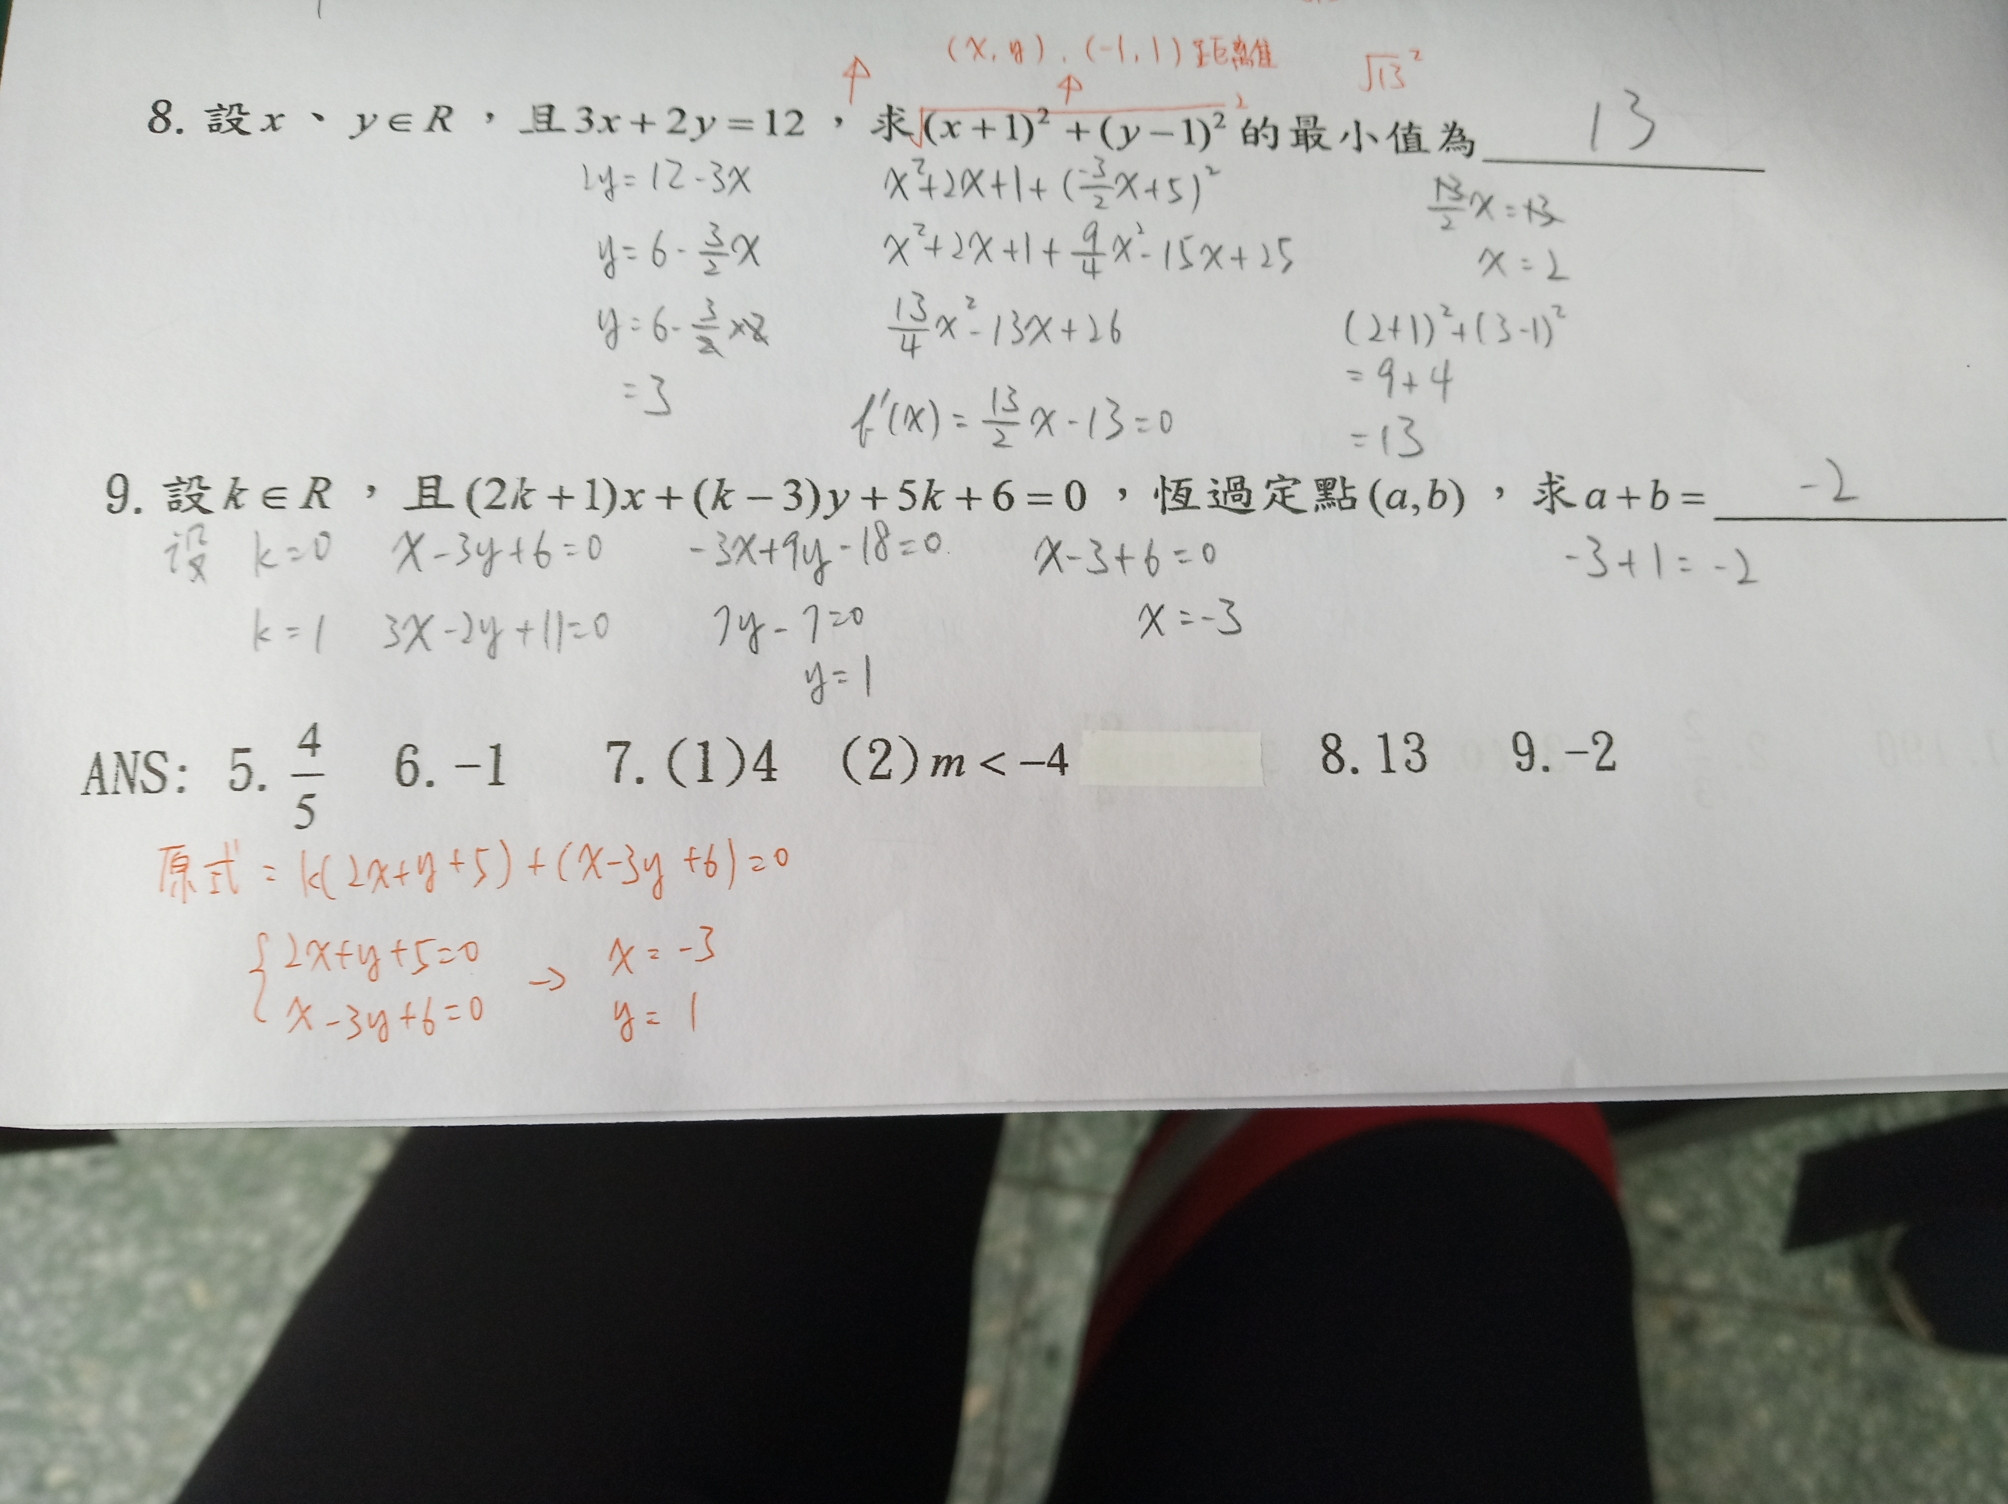 (x, y), (-1, 1) 距離 √13²
8. 設 x、y∈R，且 3x+2y=12，求 √(x+1)²+(y-1)² ² 的最小值為 13
2y=12-3x x²+2x+1+(-3/2x+5)² 13/2x=13
y=6-3/2x x²+2x+1+9/4x²-15x+25 x=2
y=6-3/2×2 13/4x²-13x+26 (2+1)²+(3-1)²
=3 =9+4
f'(x)=13/2x-13=0 =13
9. 設 k∈R，且(2k+1)x+(k-3)y+5k+6=0，恆過定點(a,b)，求a+b= -2
設 k=0 x-3y+6=0 -3x+9y-18=0 x-3+6=0 -3+1=-2
k=1 3x-2y+11=0 7y-7=0 x=-3
y=1
ANS: 5. 4/5 6. -1 7. (1)4 (2) m<-4 8. 13 9. -2
原式=k(2x+y+5)+(x-3y+6)=0
{2x+y+5=0 → x=-3
x-3y+6=0 y=1